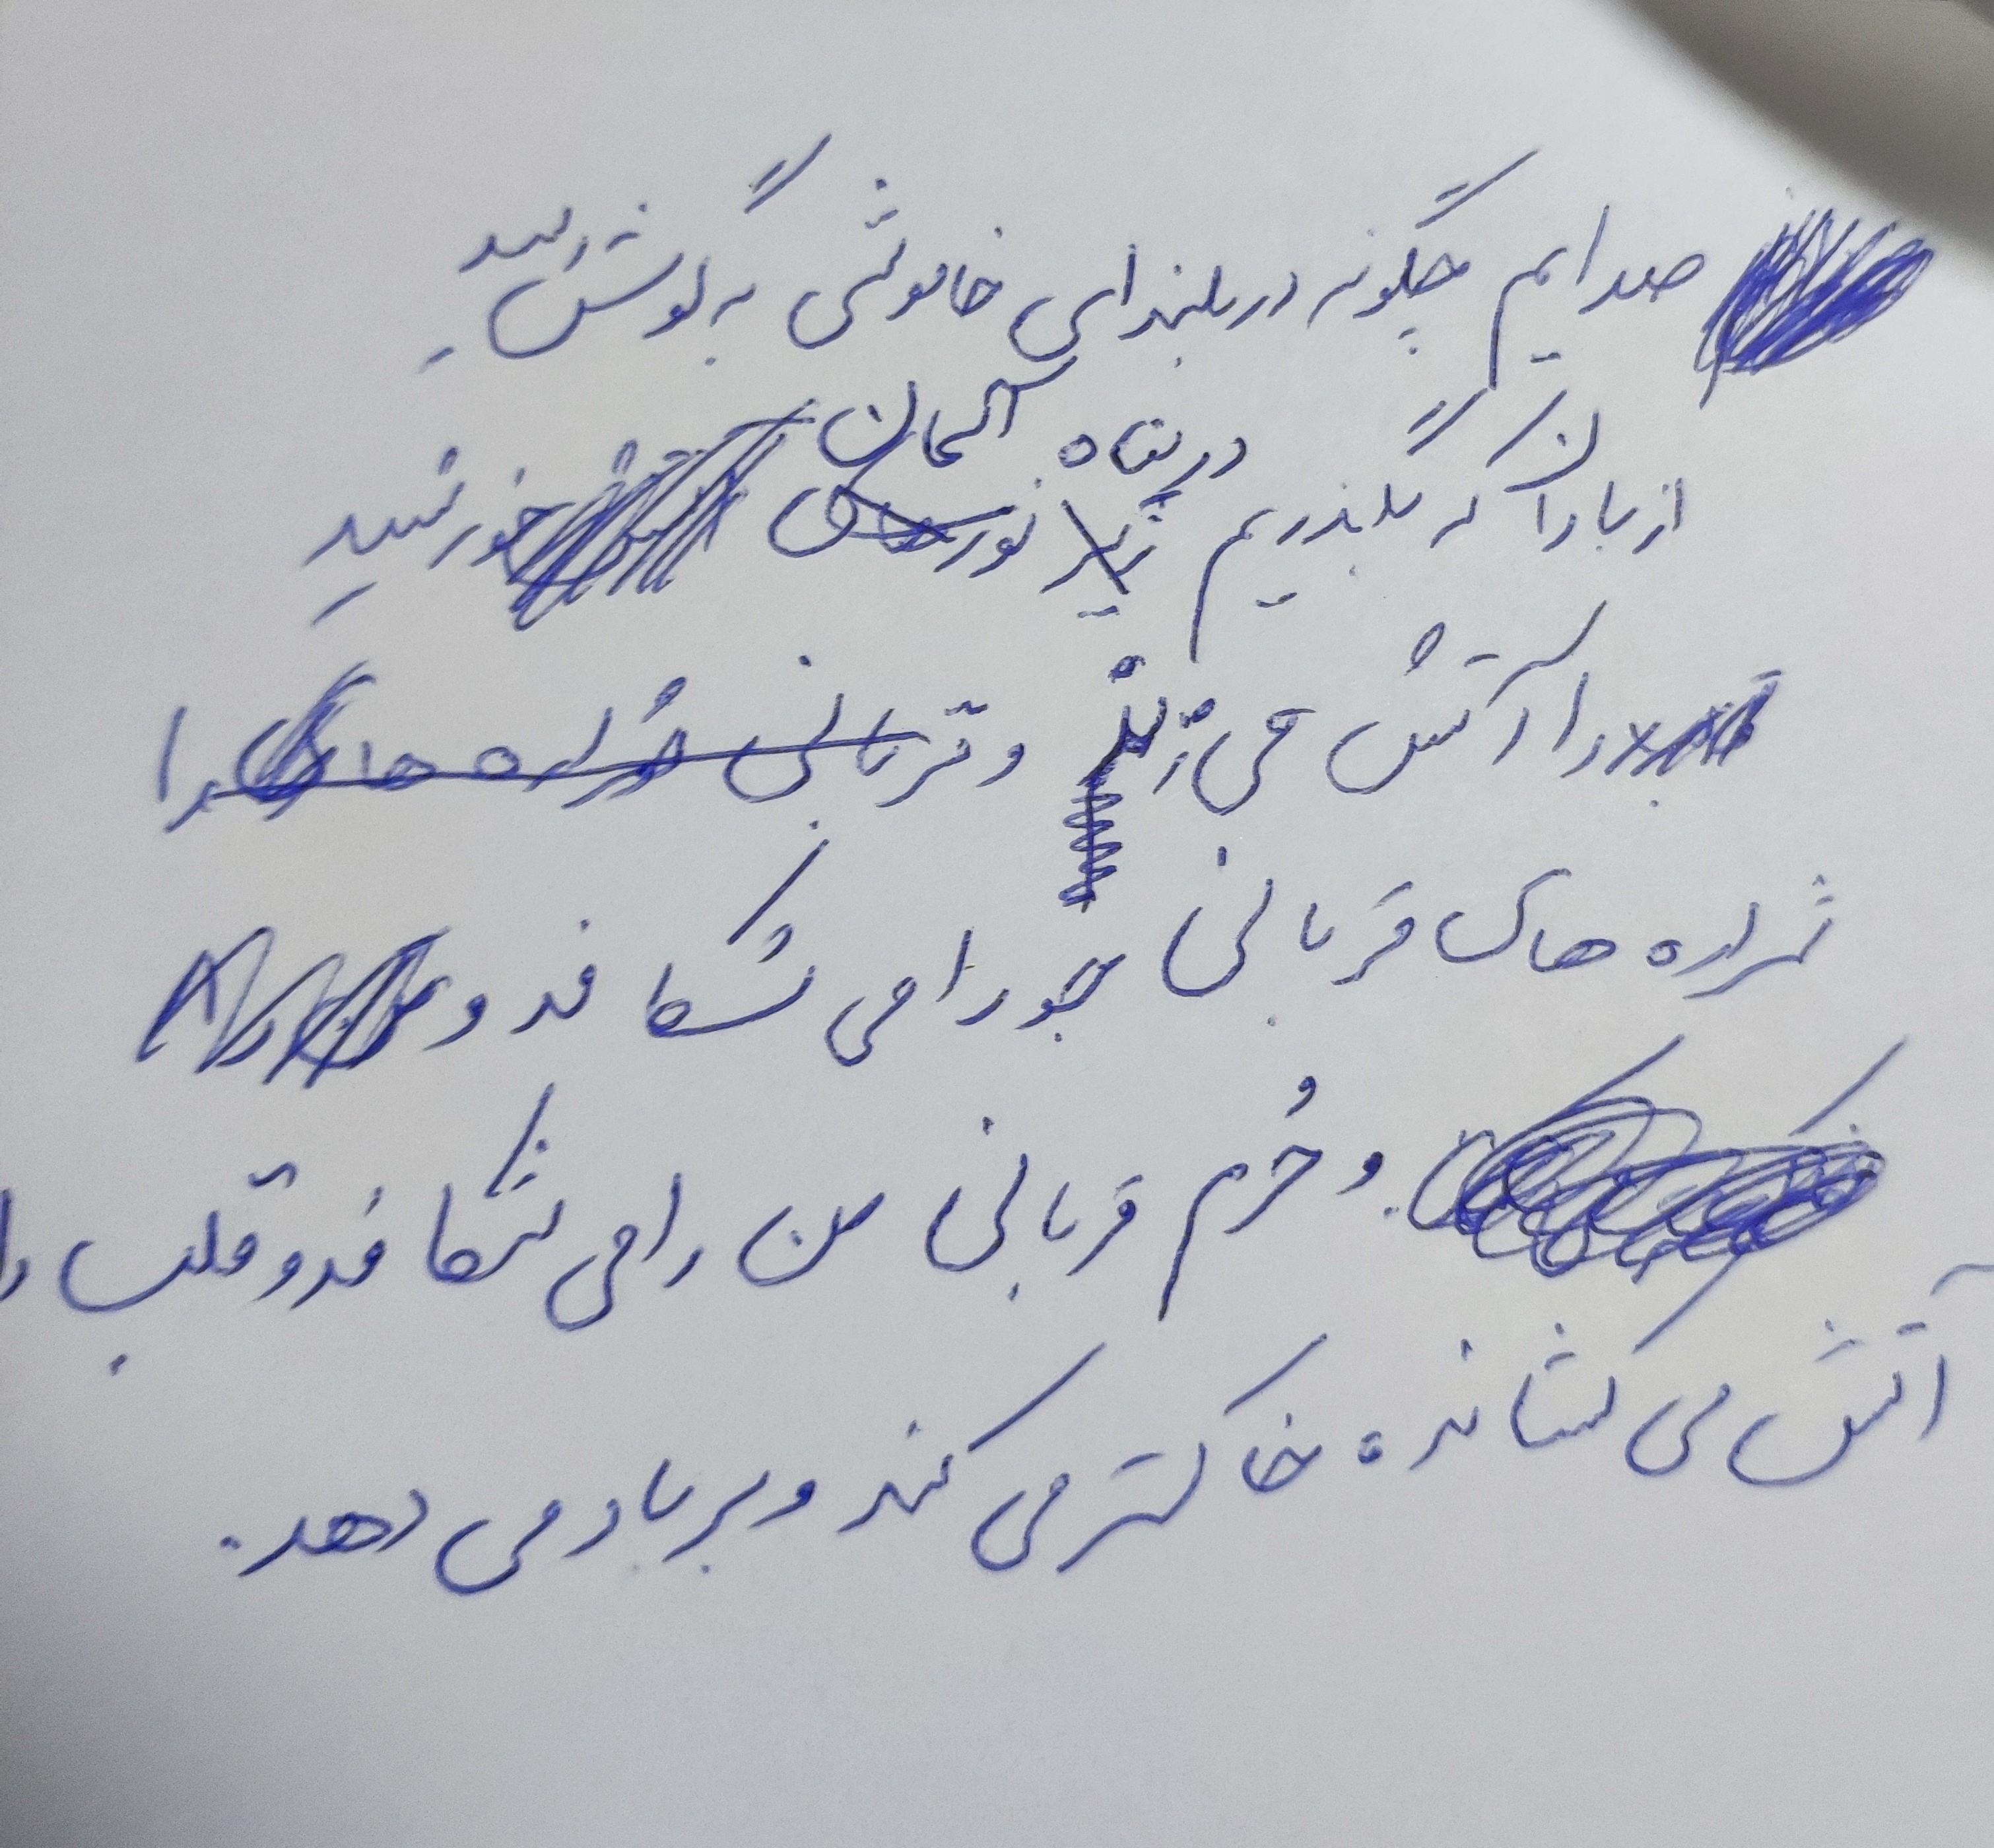 صدایم چگونه در بلندای خاموشی به گوش رسید
از باران که بگذریم در پناه آسمان خورشید
را آتش می زند و
شراره های قربانی جو را می شکافد و
و خرم قربانی من را می شکافد و قلب را
آتش می کشاند، خاکستر می کند و بر باد می دهد.